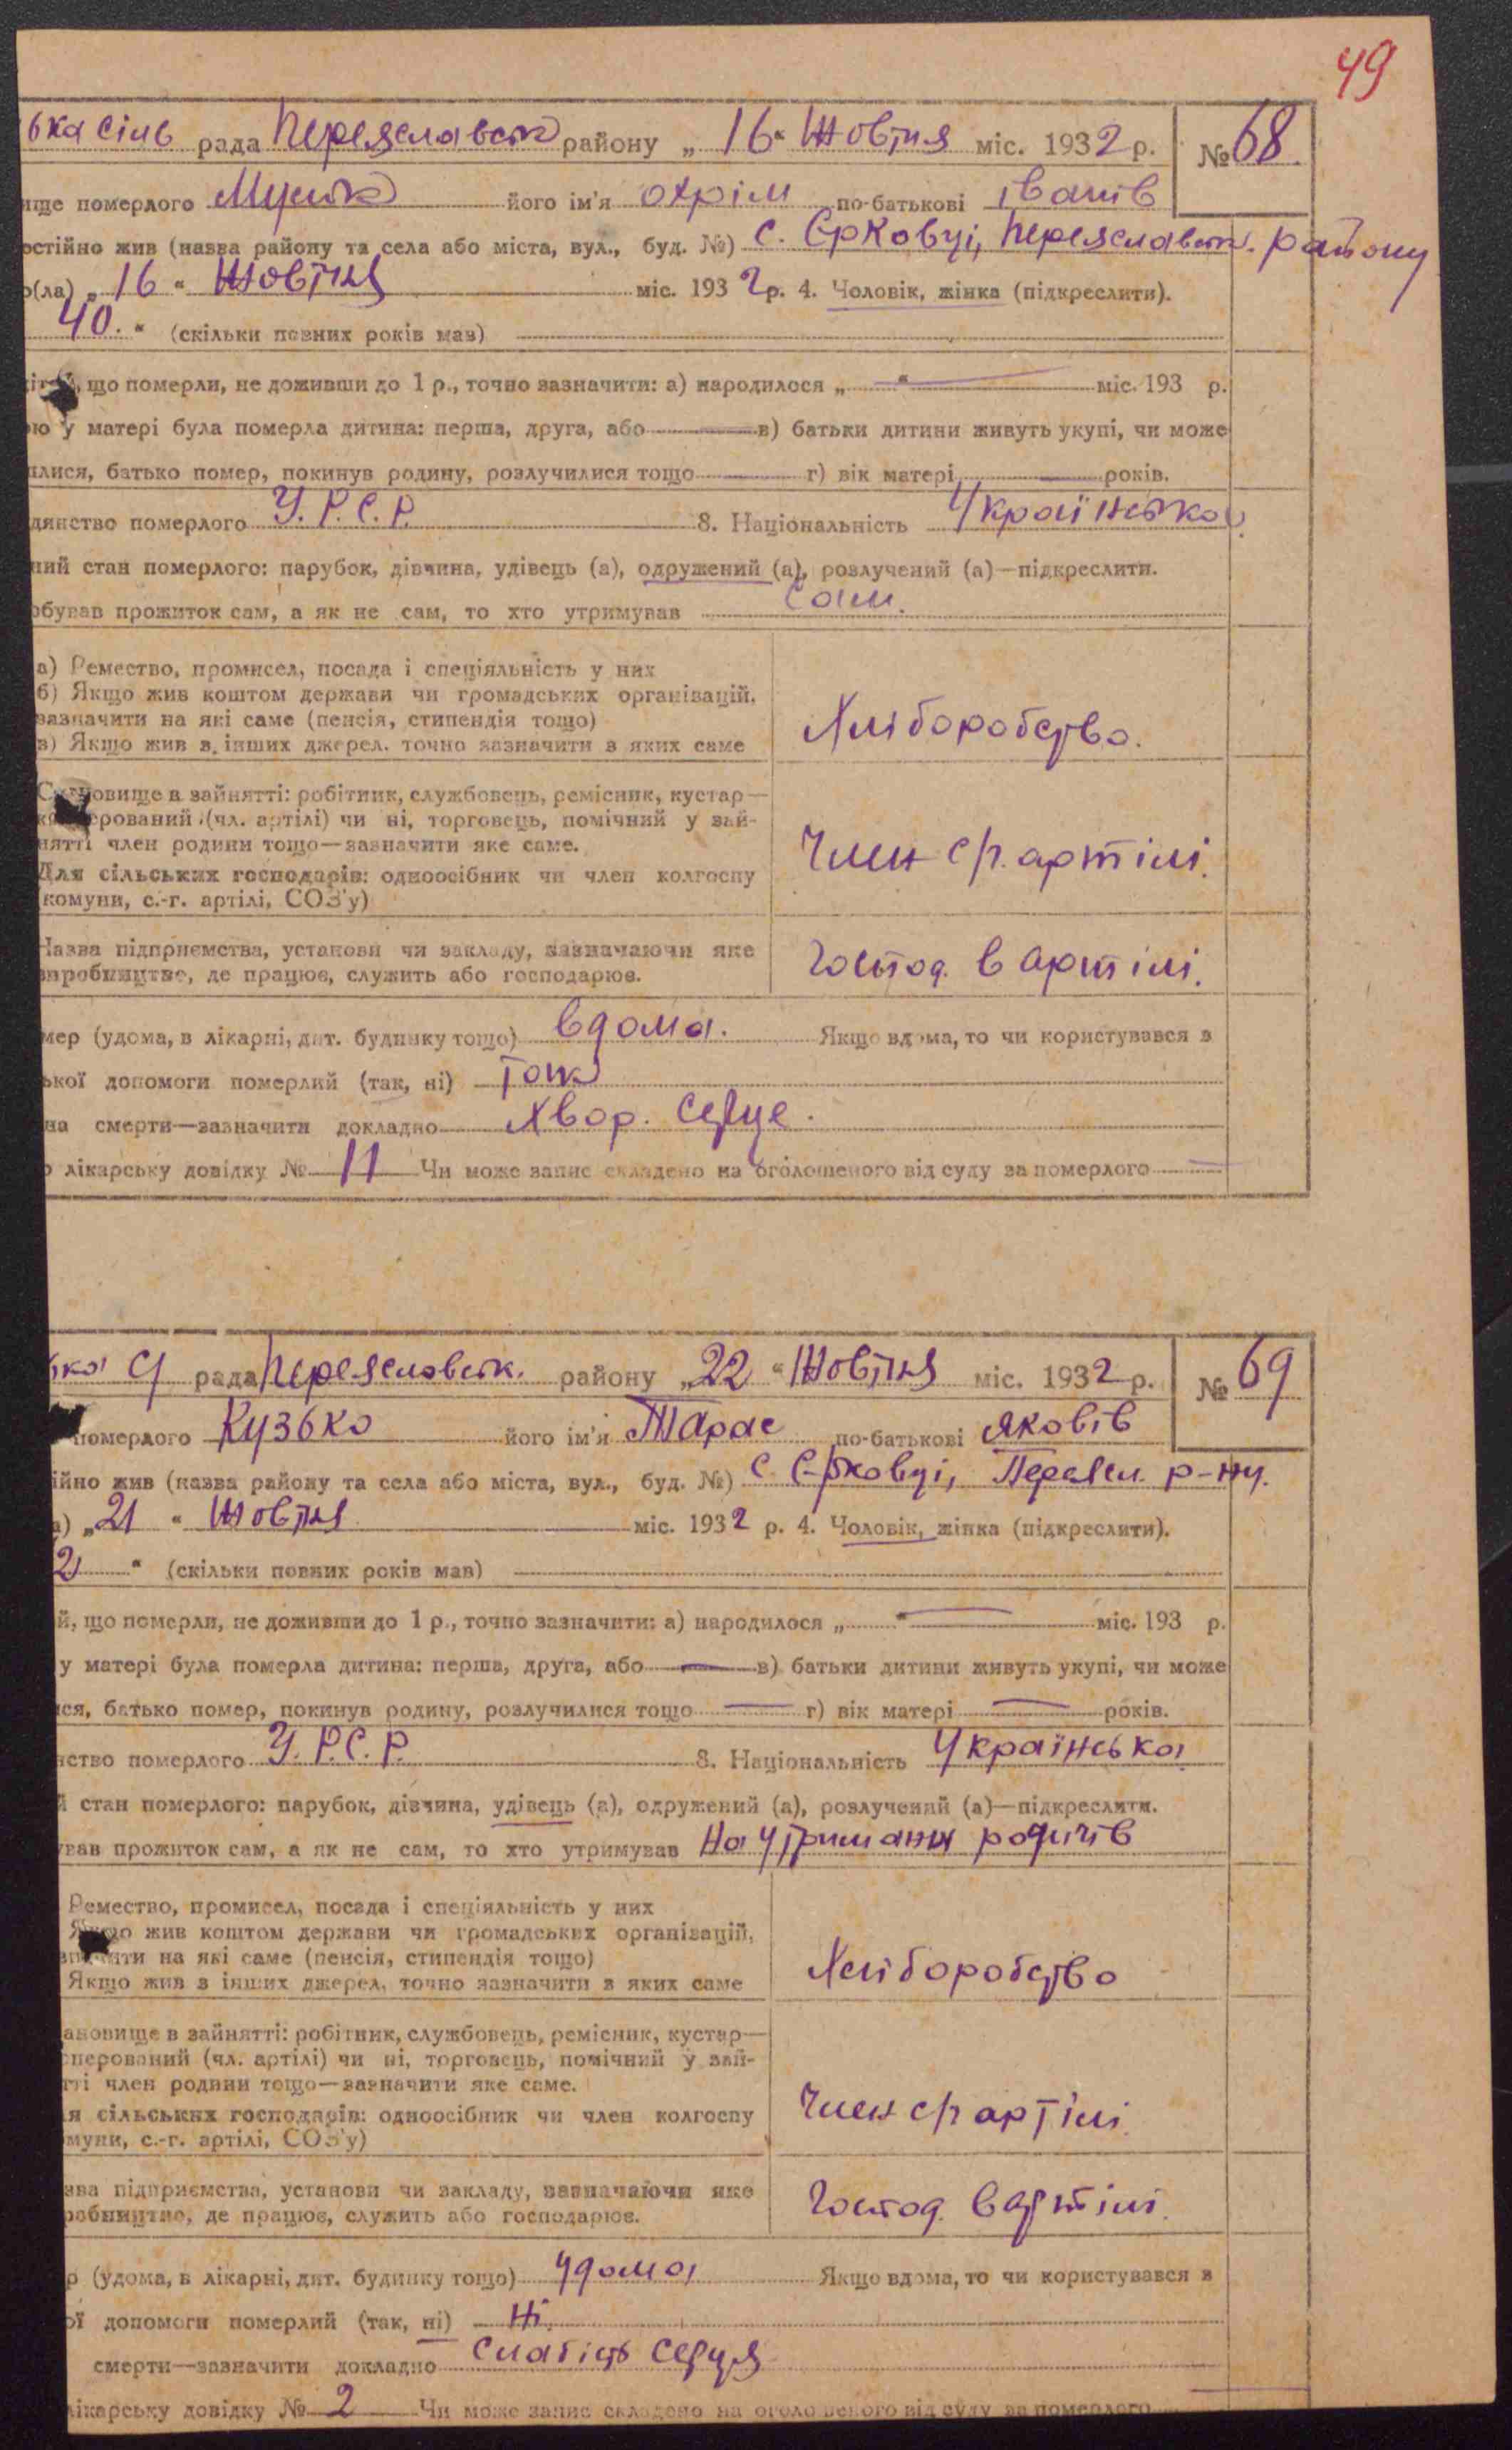 49
ька сіль рада Переяславськ району „16“ Жовтня міс. 1932 р. № 68.
ище померлого його ім'я Охрім по-батькові Іванів
остійно жив (назва району та села або міста, вул., буд. №) с. Єрковці, Переяславськ. району
о(ла) „16“ Жовтня міс. 1932 р. 4. Чоловік, жінка (підкреслити).
40. “ (скільки повних років мав)
що померли, не доживши до 1 р., точно зазначити: а) народилося „ “ міс. 193 р.
ю у матері була померла дитина: перша, друга, або — в) батьки дитини живуть укупі, чи може
лися, батько помер, покинув родину, розлучилися тощо — г) вік матері — років.
дянство померлого У.Р.С.Р. 8. Національність Українська
ний стан померлого: парубок, дівчина, удівець (а), одружений (а), розлучений (а)—підкреслити.
обував прожиток сам, а як не сам, то хто утримував Сам.
а) Ремество, промисел, посада і спеціяльність у них
б) Якщо жив коштом держави чи громадських організацій,
зазначити на які саме (пенсія, стипендія тощо)
в) Якщо жив з інших джерел, точно зазначити з яких саме
Хліборобство.
Становище в зайнятті: робітник, службовець, ремісник, кустар—
кооперований (чл. артілі) чи ні, торговець, помічний у зай-
нятті член родини тощо—зазначити яке саме.
Для сільських господарів: одноосібник чи член колгоспу
(комуни, с.-г. артілі, СОЗ'у)
Член с/г. артілі.
Назва підприємства, установи чи закладу, зазначаючи яке
виробництво, де працює, служить або господарює.
Господ. в артілі.
мер (удома, в лікарні, дит. будинку тощо) вдома. Якщо вдома, то чи користувався з
ької допомоги померлий (так, ні) Так
на смерти—зазначити докладно Хвор. серце.
о лікарську довідку № 11 Чи може запис складено на оголошеного від суду за померлого —
ька с/ рада Переяславськ. району „22“ Жовтня міс. 1932 р. № 69
померлого Кузько його ім'я Тарас по-батькові Яковів
ійно жив (назва району та села або міста, вул., буд. №) с. Єрковці, Переясл. р-ну.
а) „21“ Жовтня міс. 1932 р. 4. Чоловік, жінка (підкреслити).
2 “ (скільки повних років мав)
й, що померли, не доживши до 1 р., точно зазначити: а) народилося „ “ міс. 193 р.
у матері була померла дитина: перша, друга, або — в) батьки дитини живуть укупі, чи може
ися, батько помер, покинув родину, розлучилися тощо — г) вік матері — років.
нство померлого У.Р.С.Р. 8. Національність Українська
й стан померлого: парубок, дівчина, удівець (а), одружений (а), розлучений (а)—підкреслити.
ував прожиток сам, а як не сам, то хто утримував На утриманні родичів
Ремество, промисел, посада і спеціяльність у них
Якщо жив коштом держави чи громадських організацій,
зазначити на які саме (пенсія, стипендія тощо)
Якщо жив з інших джерел, точно зазначити з яких саме
Хліборобство
ановище в зайнятті: робітник, службовець, ремісник, кустар—
оперований (чл. артілі) чи ні, торговець, помічний у зай-
тті член родини тощо—зазначити яке саме.
ля сільських господарів: одноосібник чи член колгоспу
омуни, с.-г. артілі, СОЗ'у)
Член с/г артілі.
зва підприємства, установи чи закладу, зазначаючи яке
робництво, де працює, служить або господарює.
Господ. в артілі.
р (удома, в лікарні, дит. будинку тощо) удома Якщо вдома, то чи користувався з
ої допомоги померлий (так, ні) Ні.
смерти—зазначити докладно Слабість серця
лікарську довідку № 2 Чи може запис складено на оголошеного від суду за померлого —